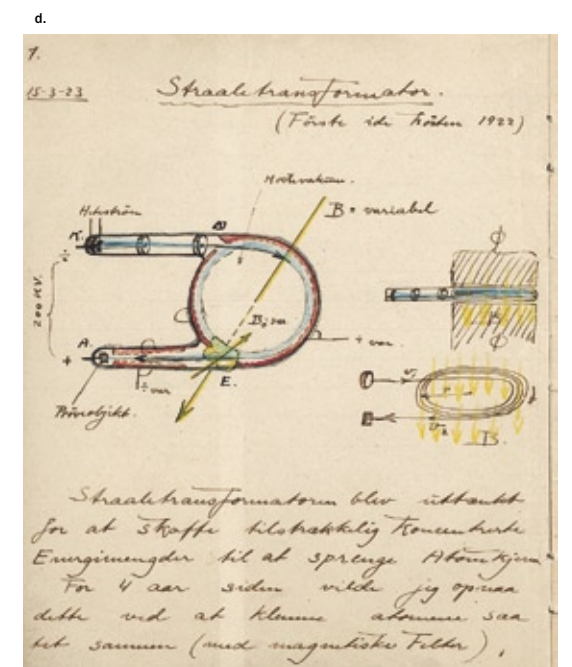 d.
1.
15-3-23
Straaletransformator.
(Förste ide hösten 1922)
Hochvakuum.
B = variabel
K.
200 KV.
A.
+
+ var.
÷ var
E.
Pröveobjekt.
B.
Straaletransformatoren blev uttænkt
for at skaffe tilstrækkelig koncentrerte
Energimengder til at sprenge Atomkjern
For 4 aar siden vilde jeg opnaa
dette ved at klemme atomene saa
tet sammen (med magnetiske Felter),